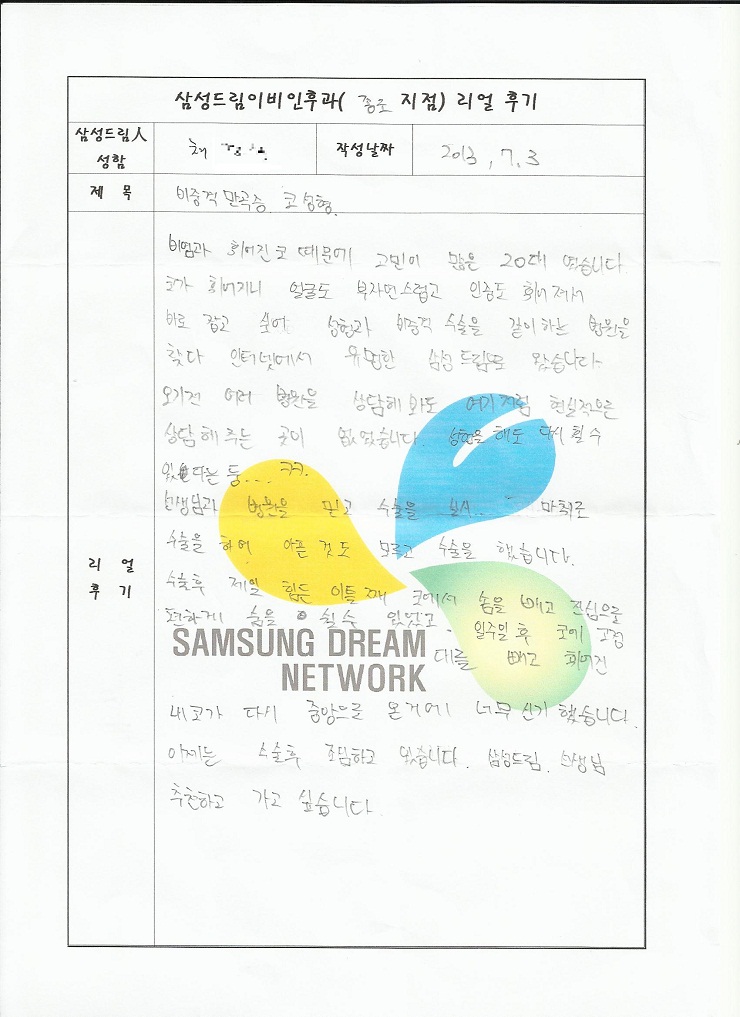 삼성드림이비인후과( 종로 지점) 리얼 후기
삼성드림人 성함
채
작성날짜
2013, 7. 3
제 목
비중격 만곡증. 코성형.
리 얼 후 기
비염과 휘어진 코 때문에 고민이 많은 20대 였습니다.
코가 휘어지니 얼굴도 부자연스럽고 인중도 휘어져서
바로 잡고 싶어 성형과 비중격 수술을 같이하는 병원을
찾다 인터넷에서 유명한 삼성드림으로 왔습니다.
오기전 여러 병원을 상담해 봐도 여기처럼 현실적으로
상담해 주는 곳이 없었습니다. 성형을 해도 다시 휠 수
있다는 둥.... ㅋㅋ.
선생님과 병원을 믿고 수술을 마취로
수술을 하여 아픈 것도 모르고 수술을 했습니다.
수술후 제일 힘든 이틀째 코에서 솜을 빼고 진심으로
편하게 숨을 쉴 수 있었고 일주일 후 코에 고정
대를 빼고 휘어진
SAMSUNG DREAM
NETWORK
내 코가 다시 중앙으로 온거에 너무 신기했습니다.
이제는 수술후 조심하고 있습니다. 삼성드림. 선생님
추천하고 가고 싶습니다.